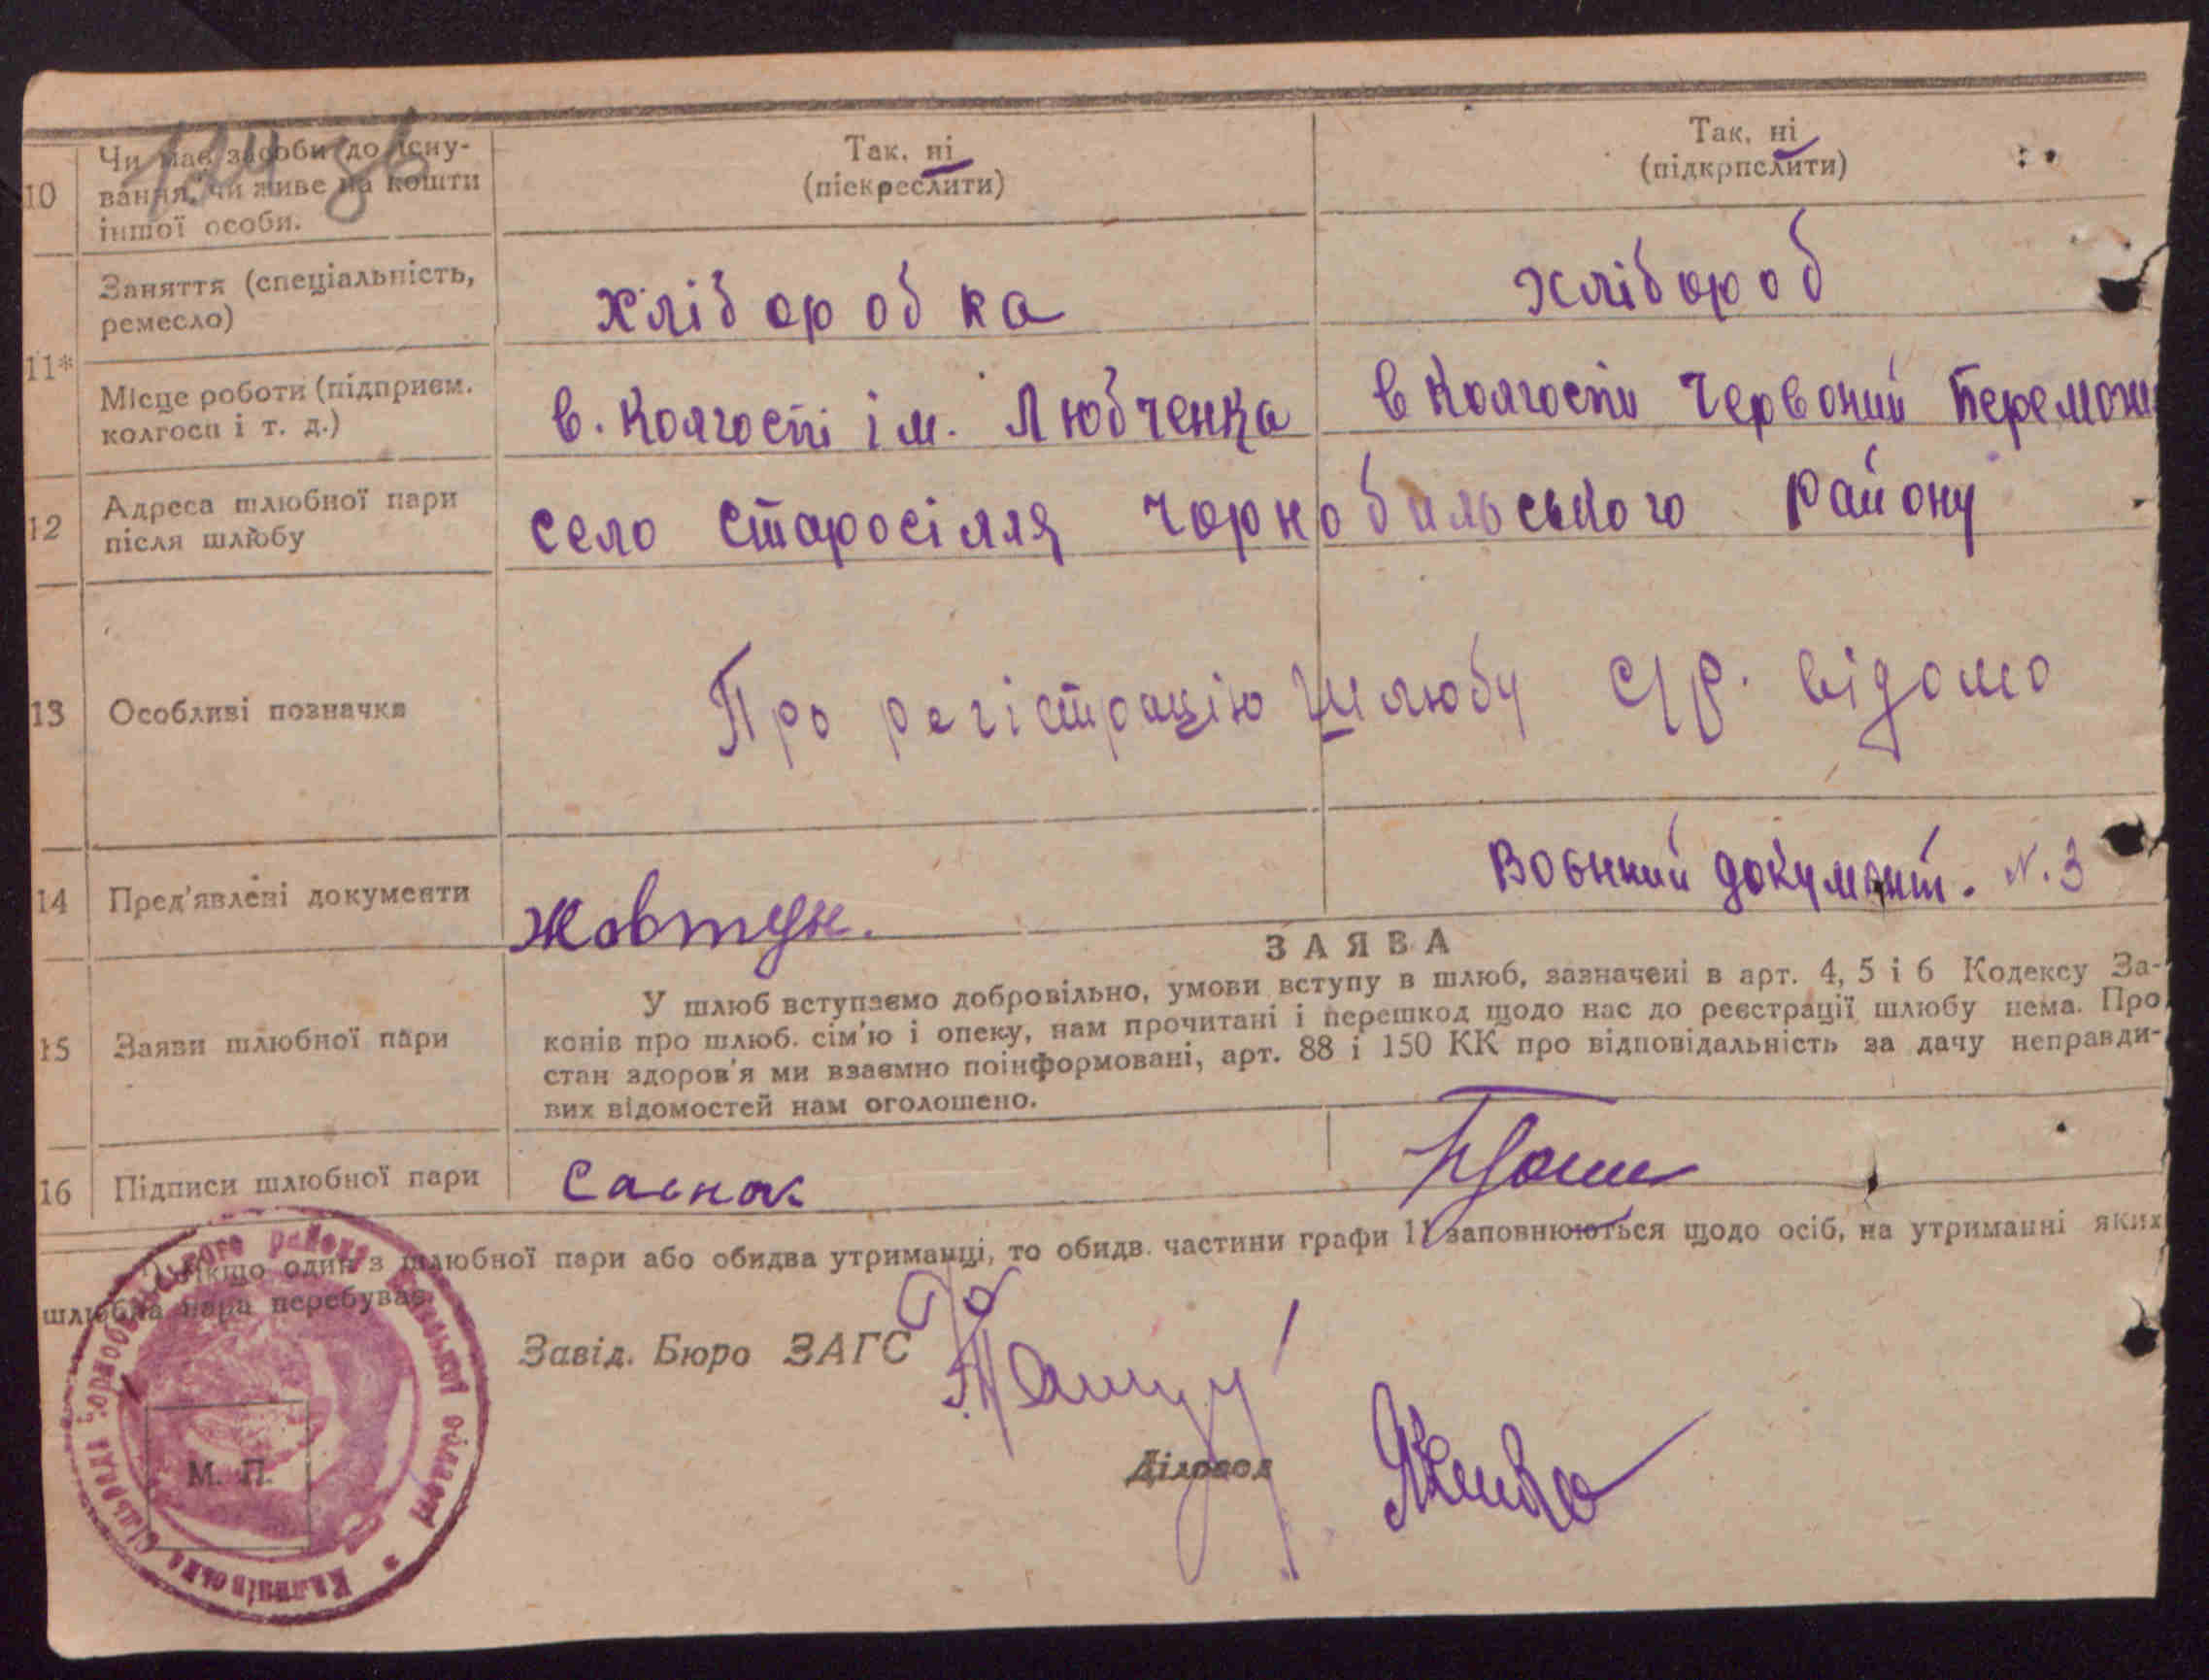 10
Чи має засоби до існу-
вання, чи живе на кошти
іншої особи.
Так, ні
(піскреслити)
Так, ні
(підкрпслити)
11*
Заняття (спеціальність,
ремесло)
хліборобка
хлібороб
Місце роботи (підприєм.
колгосп і т. д.)
в. колгоспі ім. Любченка
в колгоспи Червоний Перемож
12
Адреса шлюбної пари
після шлюбу
село Старосілля Чорнобильського району
13
Особливі позначки
Про регістрацію шлюбу с/р. відомо
14
Пред'явлені документи
Жовтун.
Воєнний документ. N. 3
15
Заяви шлюбної пари
ЗАЯВА
У шлюб вступаємо добровільно, умови вступу в шлюб, зазначені в арт. 4, 5 і 6 Кодексу За-
конів про шлюб. сім'ю і опеку, нам прочитані і перешкод щодо нас до реєстрації шлюбу нема. Про
стан здоров'я ми взаємно поінформовані, арт. 88 і 150 КК про відповідальність за дачу неправди-
вих відомостей нам оголошено.
16
Підписи шлюбної пари
*) Якщо один з шлюбної пари або обидва утриманці, то обидв. частини графи 11 заповнюються щодо осіб, на утриманні яких
шлюбна пара перебуває.
Завід. Бюро ЗАГС
М. П.
Діловод